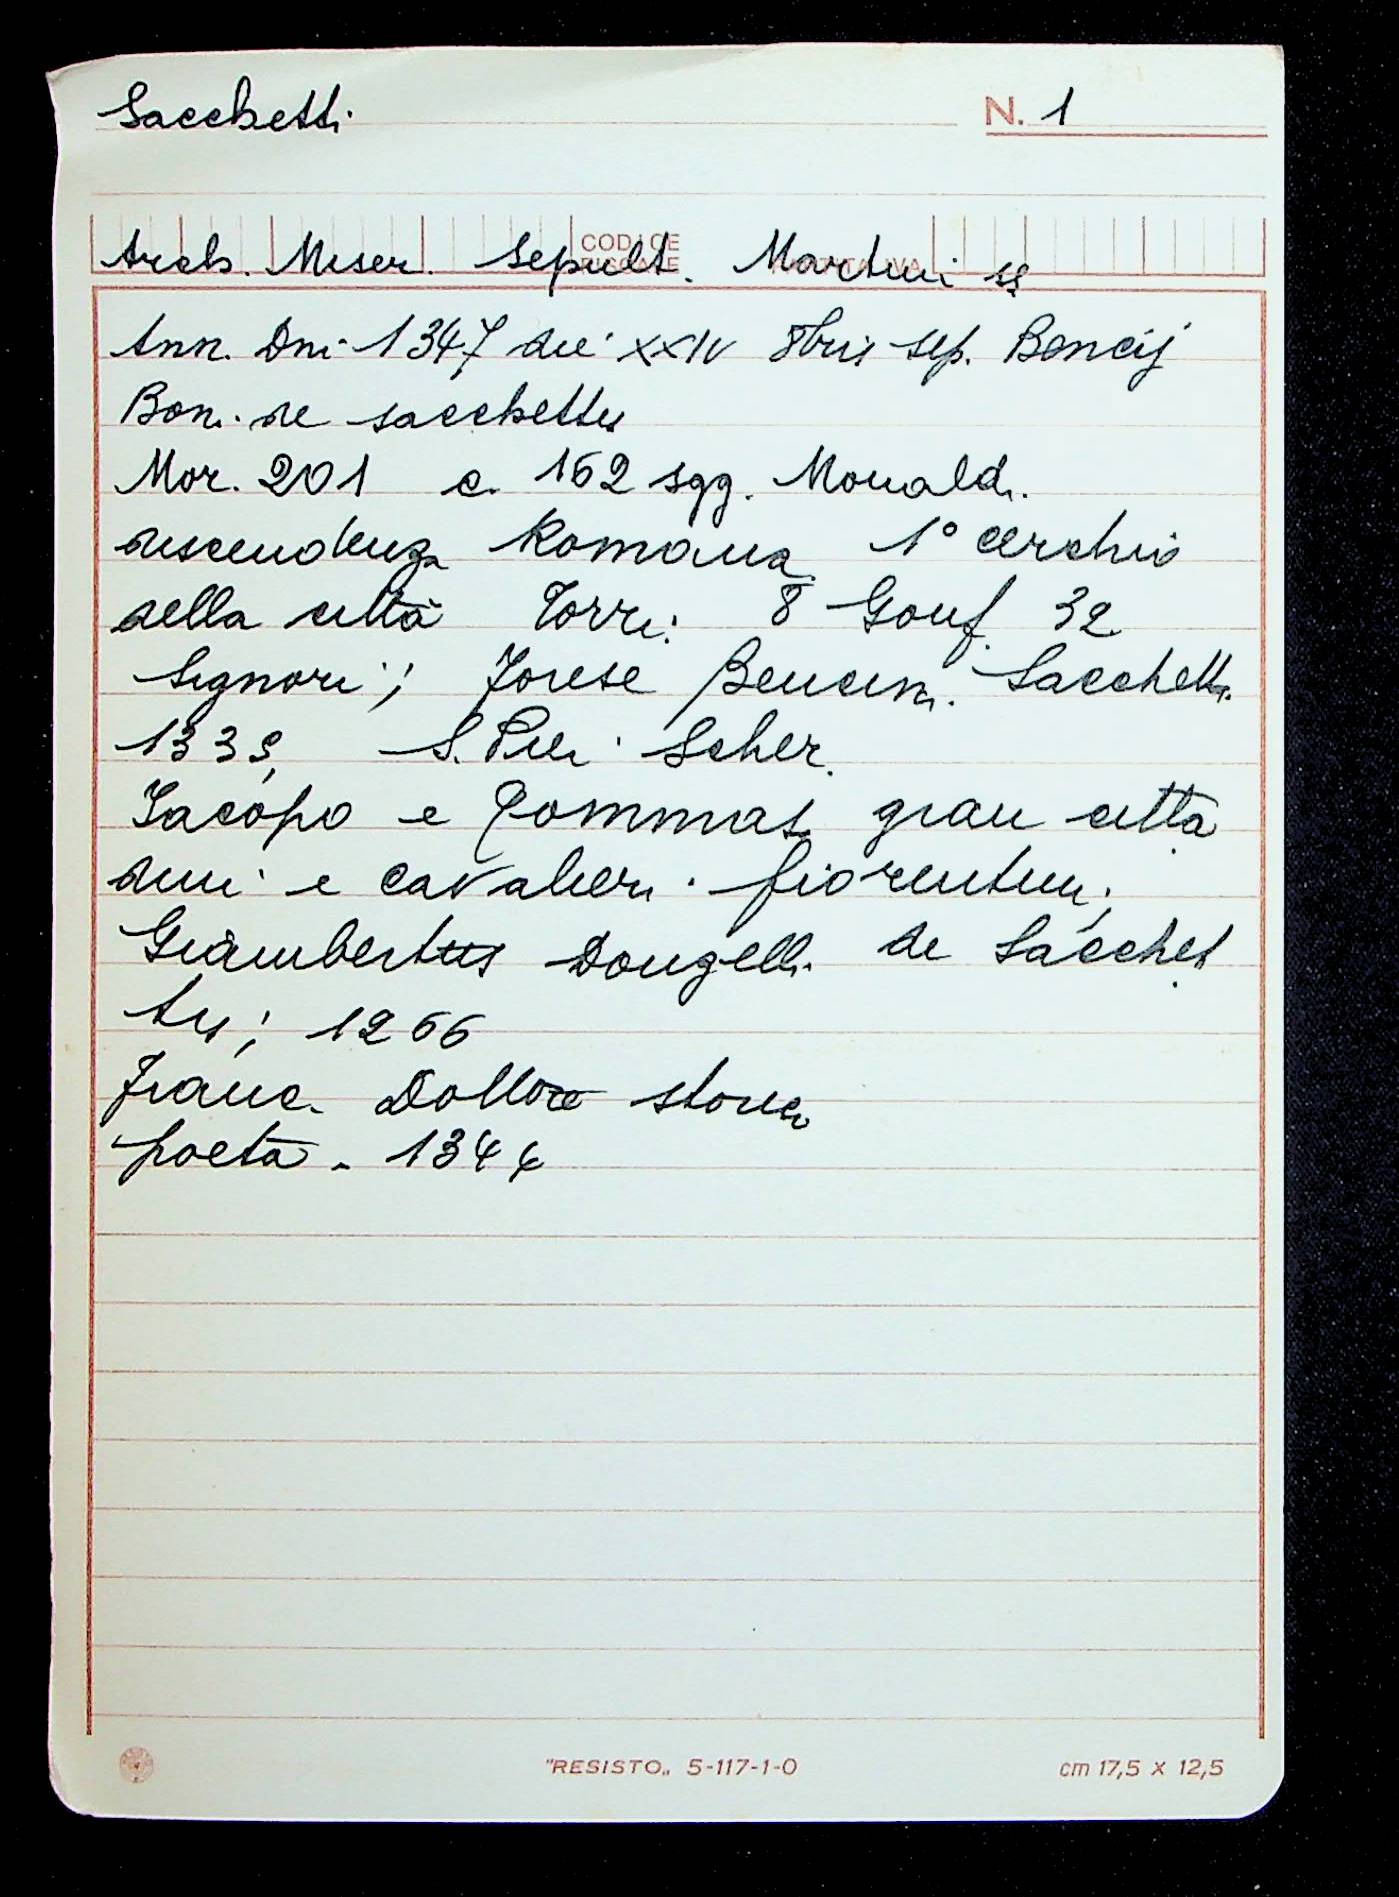 Sacchetti N. 1
CODICE
FISCALE PARTITA IVA
Arch. Miser. Sepult. Martini
Ann. Dni 1347 die XXIV 8bris sep. Bencij
Bon. de Sacchettis
Mor. 201 c. 162 sgg. Monald.
discendenza Romana 1° cerchio
della città Torri: 8 Gonf. 32
Signori; Forese Bencin. Sacchetti
1339, S. Pier Scher.
Jacopo e Tommas gran citta
dini e cavalieri fiorentini;
Giambertus Donzelli de Sacchet
tis; 1266
Franc. Dottore storico
poeta - 1344
"RESISTO„ 5-117-1-0 cm 17,5 x 12,5